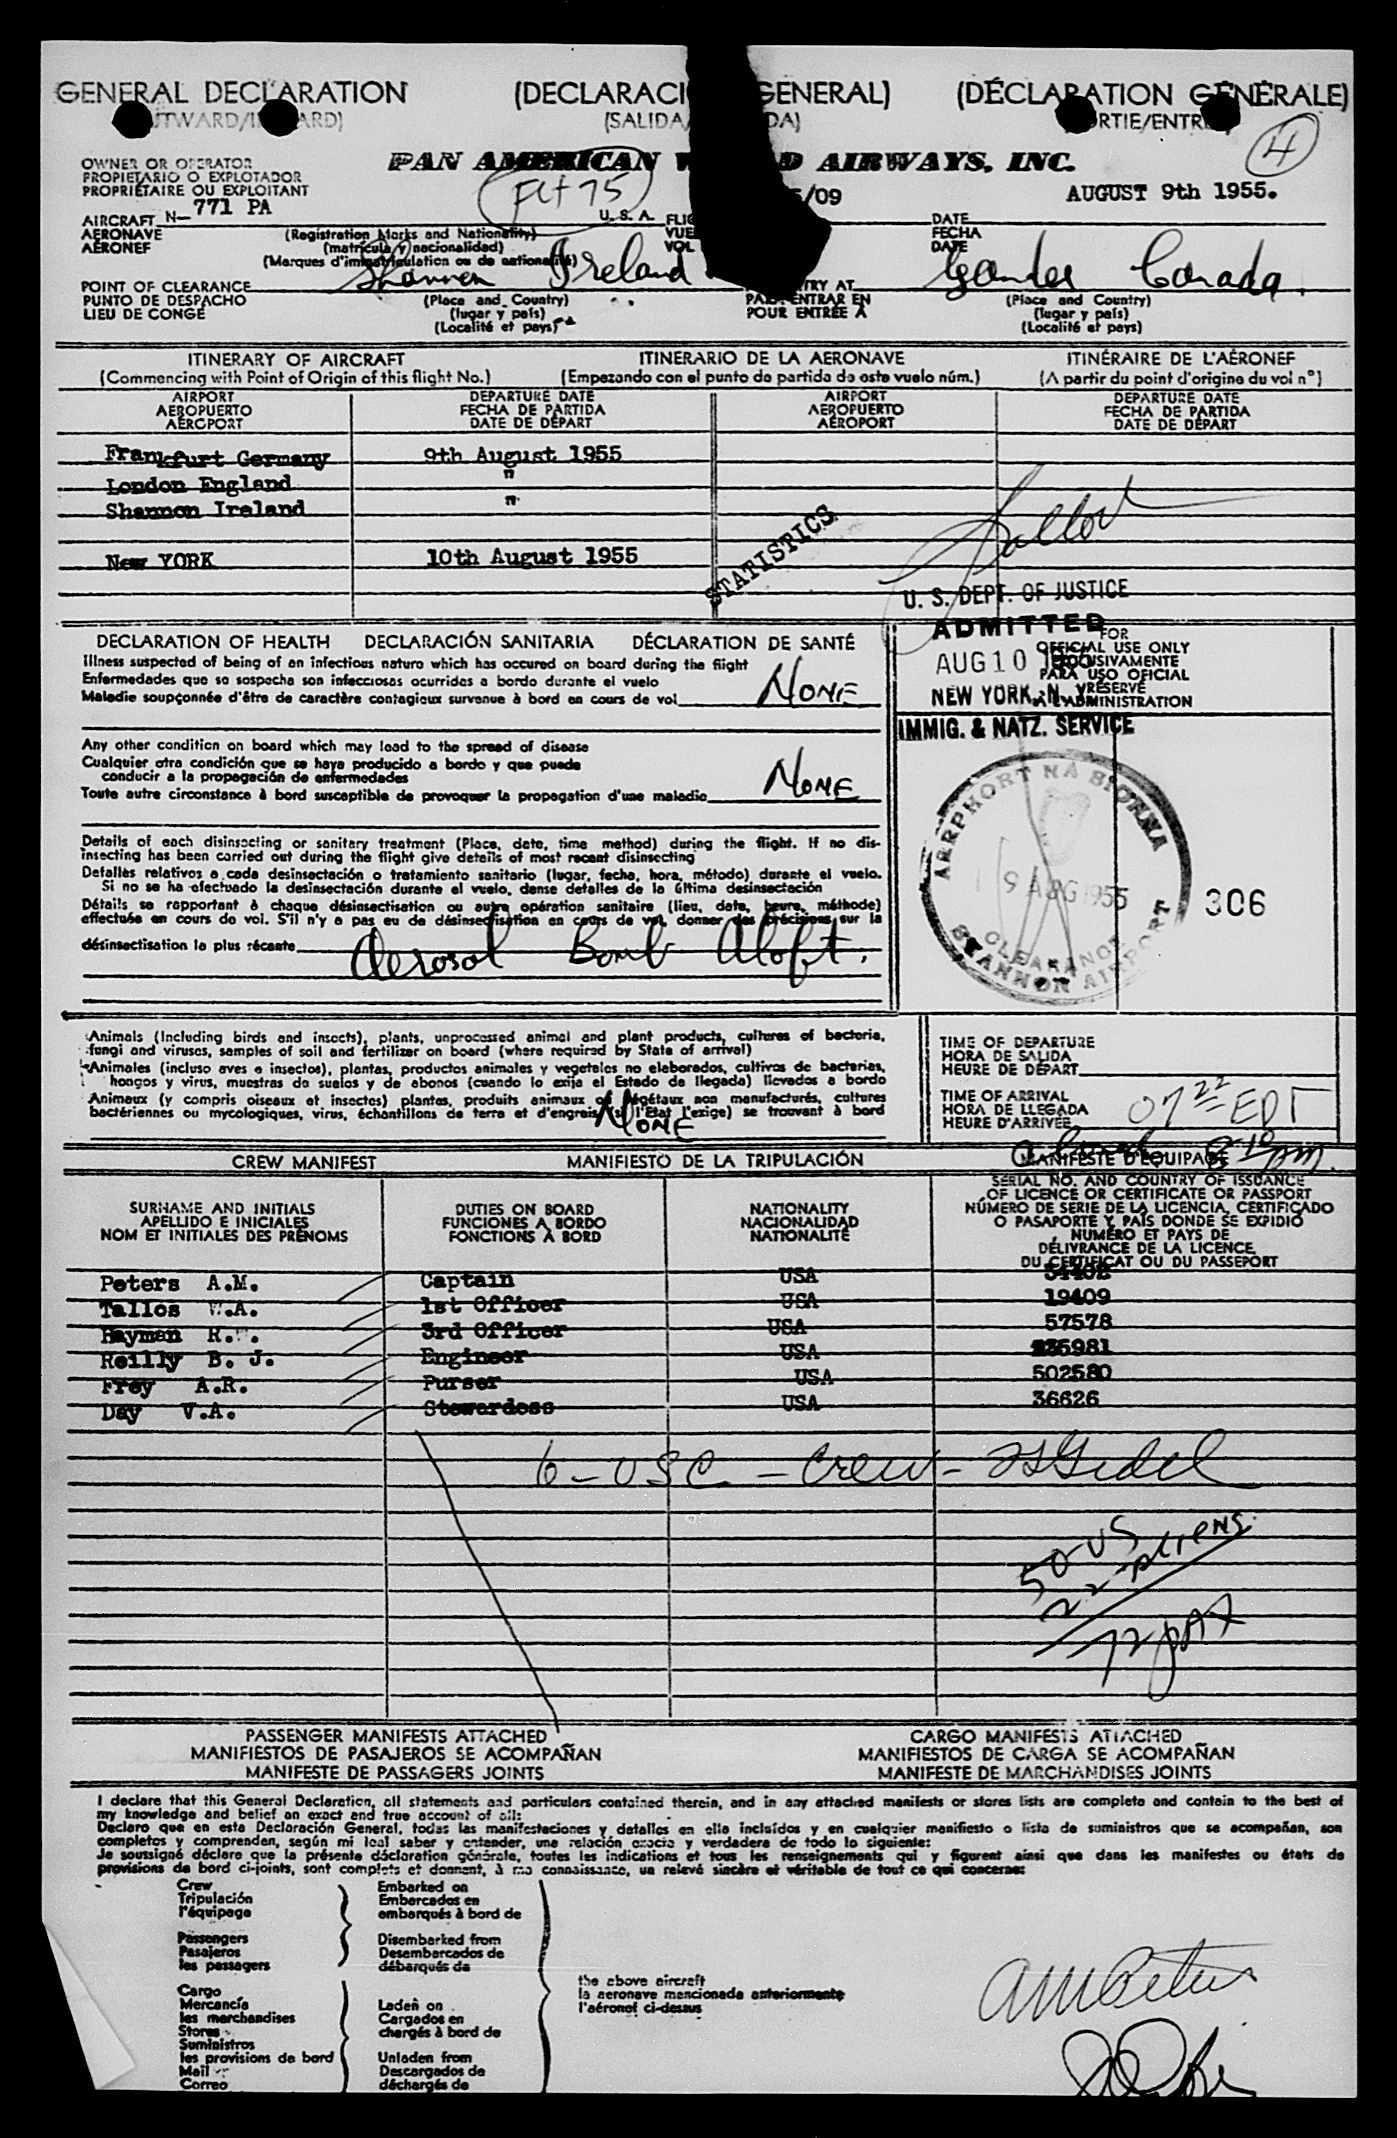 GENERAL DECLARATION (DECLARACI ENERAL) (DÉCLARATION GÉNÉRALE)
(SALIDA DA) RTIE/ENTR
4
OWNER OR OPERATOR
PROPIETARIO O EXPLOTADOR
PROPRIÉTAIRE OU EXPLOITANT
PAN AMERICAN W D AIRWAYS, INC.
Flt 75
/09
AUGUST 9th 1955.
AIRCRAFT N- 771 PA U.S.A. FLI DATE
AERONAVE (Registration Marks and Nationality) VUE FECHA
AÉRONEF (matrícula y nacionalidad) VOL DATE
(Marques d'immatriculation ou de nationalité)
Shannon Ireland Gander Canada.
POINT OF CLEARANCE TRY AT
PUNTO DE DESPACHO (Place and Country) PARA ENTRAR EN (Place and Country)
LIEU DE CONGÉ (lugar y país) POUR ENTRÉE À (lugar y país)
(Localité et pays) (Localité et pays)
ITINERARY OF AIRCRAFT ITINERARIO DE LA AERONAVE ITINÉRAIRE DE L'AÉRONEF
(Commencing with Point of Origin of this flight No.) (Empezando con el punto de partida de este vuelo núm.) (A partir du point d'origine du vol n°)
AIRPORT DEPARTURE DATE AIRPORT DEPARTURE DATE
AEROPUERTO FECHA DE PARTIDA AEROPUERTO FECHA DE PARTIDA
AÉROPORT DATE DE DÉPART AÉROPORT DATE DE DÉPART
Frankfurt Germany 9th August 1955
London England "
Shannon Ireland "
New YORK 10th August 1955
STATISTICS
U. S. DEPT. OF JUSTICE
ADMITTED
AUG 10 1955
NEW YORK, N. Y.
IMMIG. & NATZ. SERVICE
FOR
OFFICIAL USE ONLY
EXCLUSIVAMENTE
PARA USO OFICIAL
RÉSERVÉ
À L'ADMINISTRATION
DECLARATION OF HEALTH DECLARACIÓN SANITARIA DÉCLARATION DE SANTÉ
Illness suspected of being of an infectious nature which has occured on board during the flight
Enfermedades que se sospecha son infecciosas ocurridas a bordo durante el vuelo
Maladie soupçonnée d'être de caractère contagieux survenue à bord en cours de vol NONE
Any other condition on board which may lead to the spread of disease
Cualquier otra condición que se haya producido a bordo y que puede
conducir a la propagación de enfermedades
Toute autre circonstance à bord susceptible de provoquer la propagation d'une maladie NONE
Details of each disinsecting or sanitary treatment (Place, date, time method) during the flight. If no dis-
insecting has been carried out during the flight give details of most recent disinsecting
Detalles relativos a cada desinsectación o tratamiento sanitario (lugar, fecha, hora, método) durante el vuelo.
Si no se ha efectuado la desinsectación durante el vuelo, dense detalles de la última desinsectación
Détails se rapportant à chaque désinsectisation ou autre opération sanitaire (lieu, date, heure, méthode)
effectuée en cours de vol. S'il n'y a pas eu de désinsectisation en cours de vol, donner des précisions sur la
désinsectisation la plus récente Aerosol Bomb Aloft.
AERPHORT NA SIONNA
9 AUG 1955
CLEARANCE
SHANNON AIRPORT
306
Animals (Including birds and insects), plants, unprocessed animal and plant products, cultures of bacteria,
fungi and viruses, samples of soil and fertilizer on board (where required by State of arrival)
Animales (incluso aves e insectos), plantas, productos animales y vegetales no elaborados, cultivos de bacterias,
hongos y virus, muestras de suelos y de abonos (cuando lo exija el Estado de llegada) llevados a bordo
Animaux (y compris oiseaux et insectes) plantes, produits animaux ou végétaux non manufacturés, cultures
bactériennes ou mycologiques, virus, échantillons de terre et d'engrais (si l'État l'exige) se trouvant à bord
NONE
TIME OF DEPARTURE
HORA DE SALIDA
HEURE DE DÉPART
TIME OF ARRIVAL
HORA DE LLEGADA
HEURE D'ARRIVÉE 07 22 EDT
8 10 AM.
CREW MANIFEST MANIFIESTO DE LA TRIPULACIÓN MANIFESTE D'ÉQUIPAGE
SURNAME AND INITIALS
APELLIDO E INICIALES
NOM ET INITIALES DES PRÉNOMS
DUTIES ON BOARD
FUNCIONES A BORDO
FONCTIONS À BORD
NATIONALITY
NACIONALIDAD
NATIONALITÉ
SERIAL NO. AND COUNTRY OF ISSUANCE
OF LICENCE OR CERTIFICATE OR PASSPORT
NÚMERO DE SERIE DE LA LICENCIA, CERTIFICADO
O PASAPORTE Y PAÍS DONDE SE EXPIDIÓ
NUMÉRO ET PAYS DE
DÉLIVRANCE DE LA LICENCE,
DU CERTIFICAT OU DU PASSEPORT
Peters A.M. Captain USA
Tallos W.A. 1st Officer USA 19409
Hayman R. 3rd Officer USA 57578
Reilly B. J. Engineer USA
Frey A.R. Purser USA 502580
Day V.A. Stewardess USA 36626
6 - USC - Crew -
50 US
22 - aliens
72 pax
PASSENGER MANIFESTS ATTACHED CARGO MANIFESTS ATTACHED
MANIFIESTOS DE PASAJEROS SE ACOMPAÑAN MANIFIESTOS DE CARGA SE ACOMPAÑAN
MANIFESTE DE PASSAGERS JOINTS MANIFESTE DE MARCHANDISES JOINTS
I declare that this General Declaration, all statements and particulars contained therein, and in any attached manifests or stores lists are complete and contain to the best of
my knowledge and belief an exact and true account of all:
Declaro que en esta Declaración General, todas las manifestaciones y detalles en ella incluidos y en cualquier manifiesto o lista de suministros que se acompañan, son
completos y comprenden, según mi leal saber y entender, una relación exacta y verdadera de todo lo siguiente:
Je soussigné déclare que la présente déclaration générale, toutes les indications et tous les renseignements qui y figurent ainsi que dans les manifestes ou états de
provisions de bord ci-joints, sont complets et donnent, à ma connaissance, un relevé sincère et véritable de tout ce qui concerne:
Crew Embarked on
Tripulación Embarcados en
l'équipage embarqués à bord de
Passengers Disembarked from
Pasajeros Desembarcados de
les passagers débarqués de
the above aircraft
la aeronave mencionada anteriormente
l'aéronef ci-dessus
Cargo
Mercancía Laden on
les marchandises Cargados en
Stores chargés à bord de
Suministros
les provisions de bord Unladen from
Mail Descargados de
Correo déchargés de
AM Peters